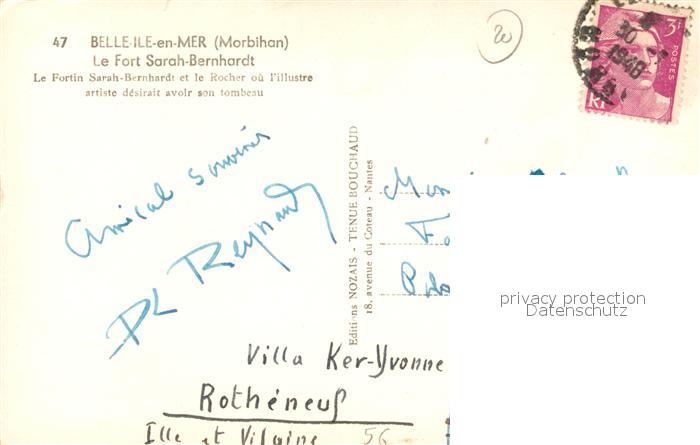 47 BELLE-ILE-en-MER (Morbihan)
Le Fort Sarah-Bernhardt
Le Fortin Sarah-Bernhardt et le Rocher où l'illustre
artiste désirait avoir son tombeau
20
3F
POSTES
RF
30
1948
Amical souvenir
PL Reynaud
Editions NOZAIS - TENUE BOUCHAUD
18, avenue du Coteau - Nantes
privacy protection
Datenschutz
Villa Ker-Yvonne
Rothéneuf
Ille et Vilaine 56